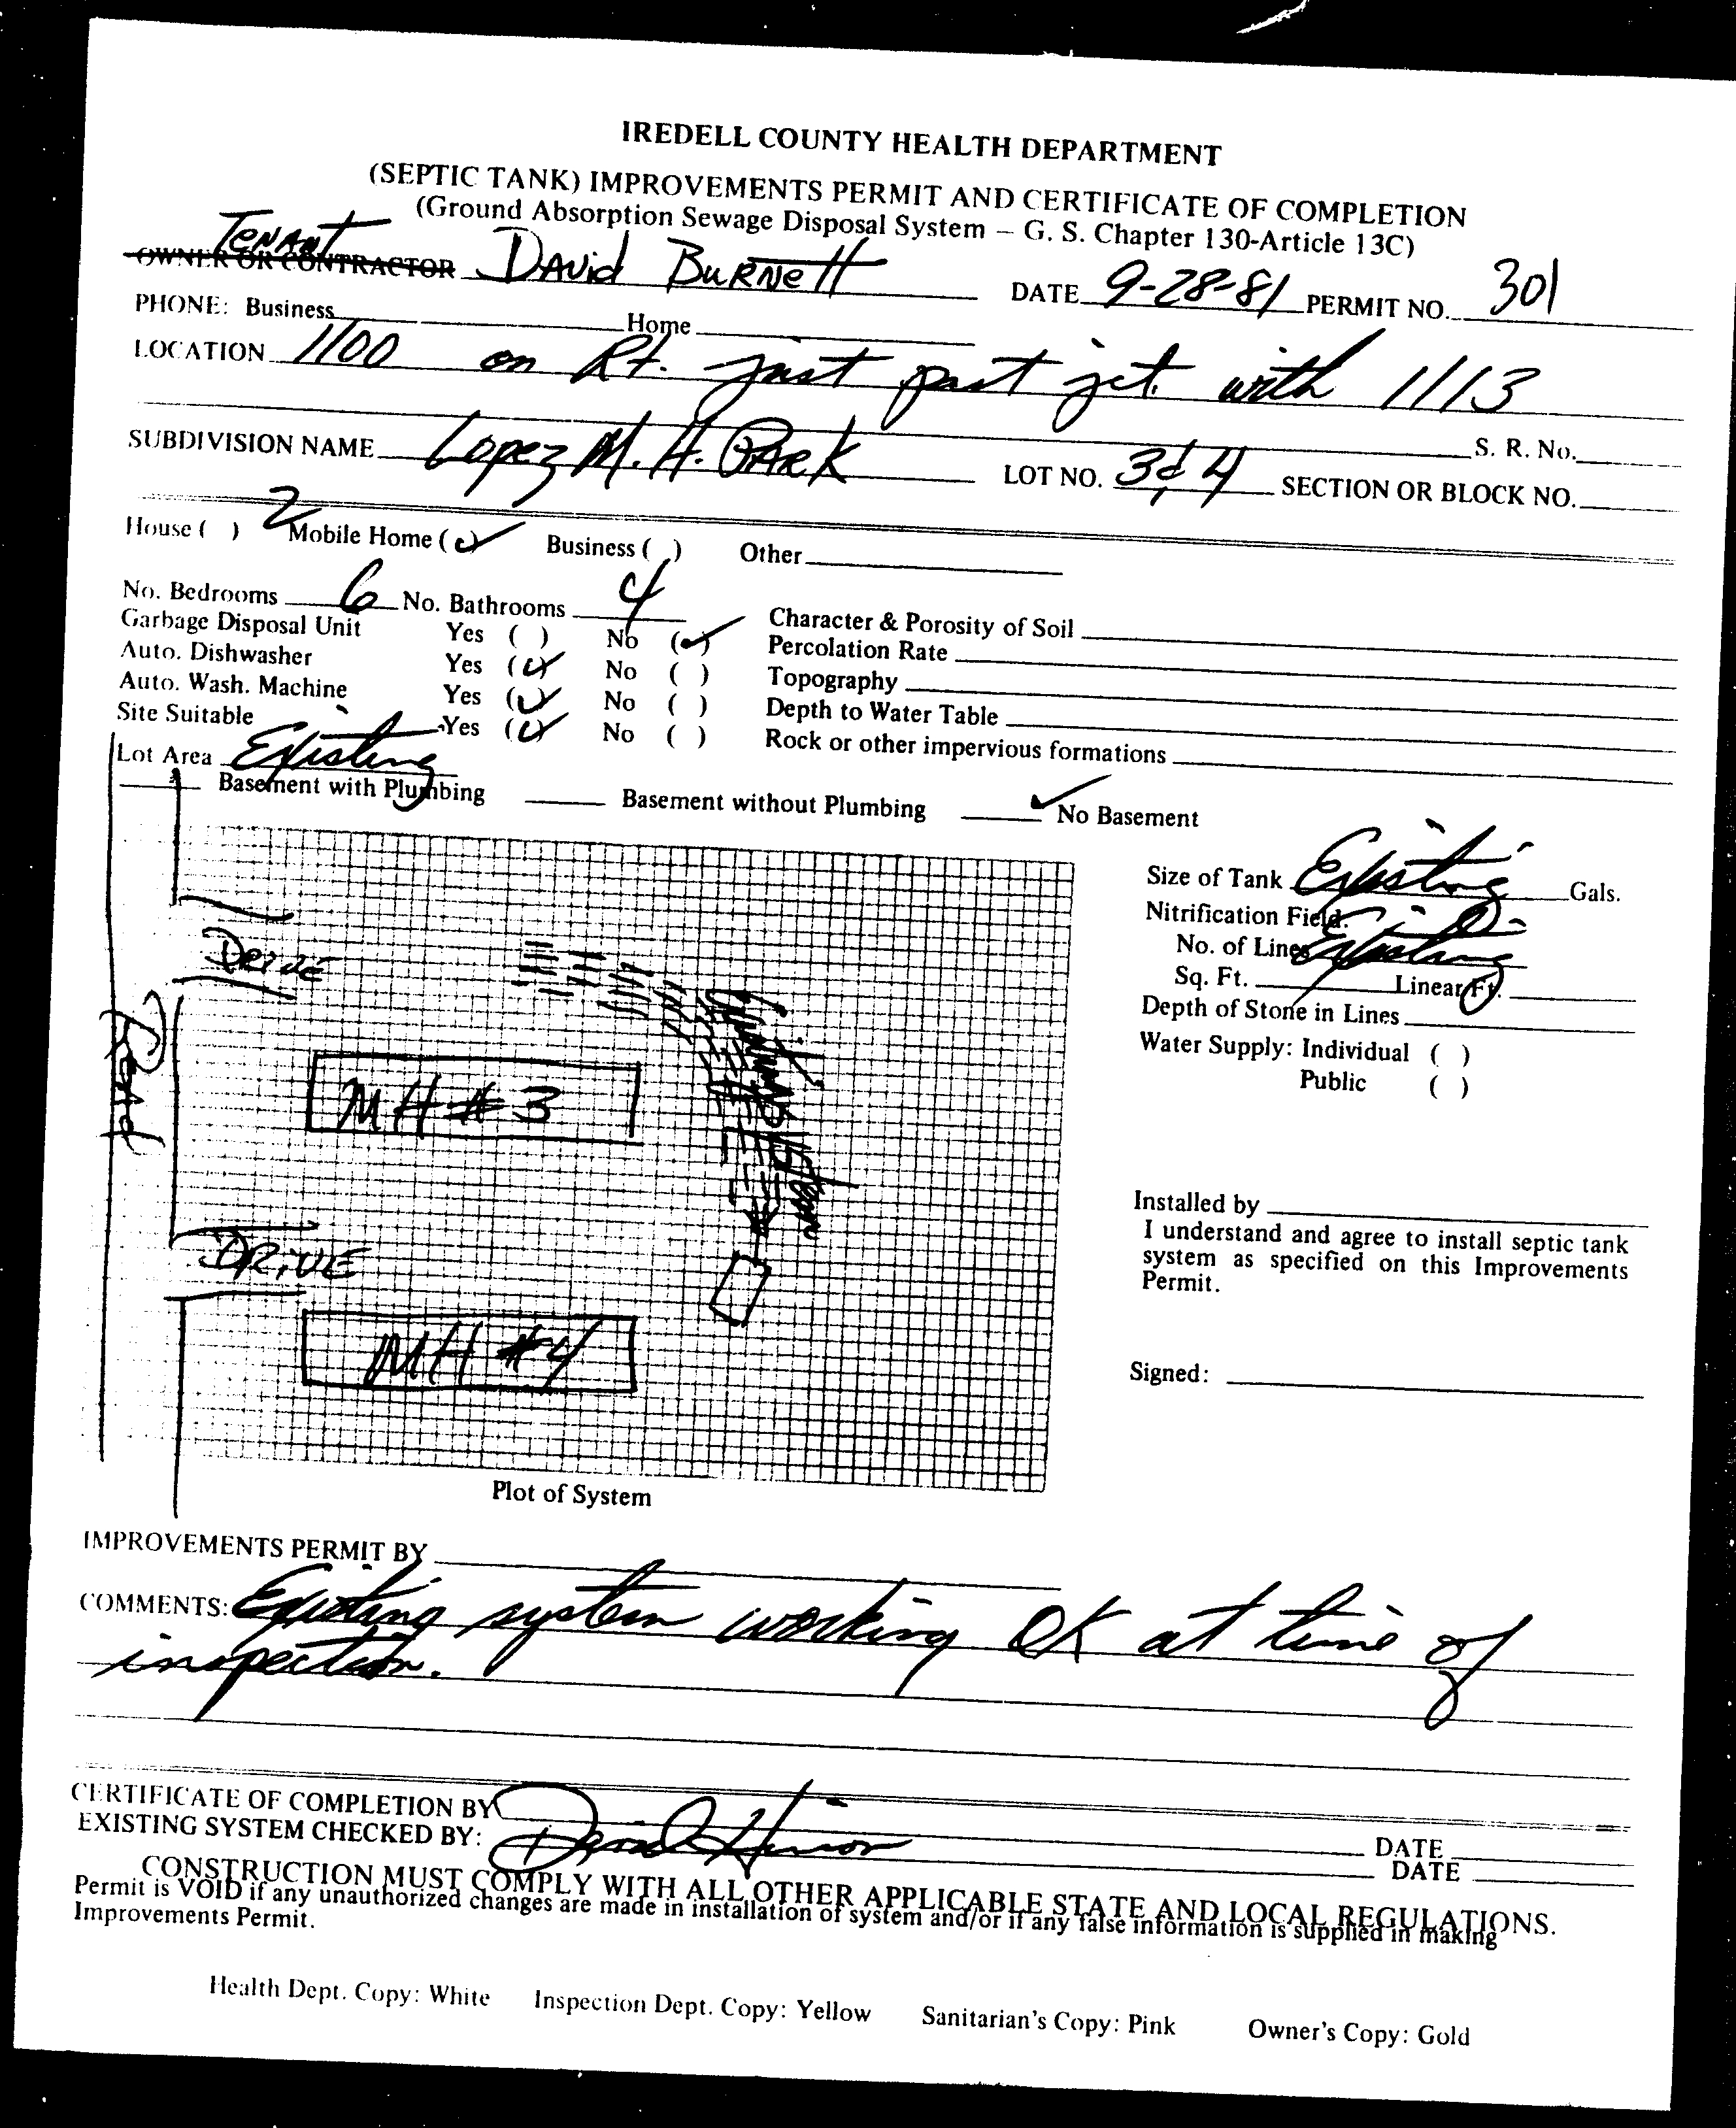 IREDELL COUNTY HEALTH DEPARTMENT
(SEPTIC TANK) IMPROVEMENTS PERMIT AND CERTIFICATE OF COMPLETION
(Ground Absorption Sewage Disposal System — G. S. Chapter 130-Article 13C)
TENANT
OWNER OR CONTRACTOR DAVID BURNETT DATE 9-28-81 PERMIT NO. 301
PHONE: Business Home
LOCATION 1100 on Rt. just past jct. with 1113
S. R. No.
SUBDIVISION NAME Lopez M. H. PARK LOT NO. 3 & 4 SECTION OR BLOCK NO.
House ( ) 2 Mobile Home (✓) Business ( ) Other
No. Bedrooms 6 No. Bathrooms 4 Character & Porosity of Soil
Garbage Disposal Unit Yes ( ) No (✓) Percolation Rate
Auto. Dishwasher Yes (✓) No ( ) Topography
Auto. Wash. Machine Yes (✓) No ( ) Depth to Water Table
Site Suitable Yes (✓) No ( ) Rock or other impervious formations
Lot Area Existing
Basement with Plumbing Basement without Plumbing ✓ No Basement
Size of Tank Existing Gals.
Nitrification Field:
No. of Lines Existing
Sq. Ft. Linear Ft.
Depth of Stone in Lines
Water Supply: Individual ( )
Public ( )
Installed by
I understand and agree to install septic tank
system as specified on this Improvements
Permit.
Signed:
DRIVE
Road
MH # 3
DRIVE
MH # 4
Plot of System
IMPROVEMENTS PERMIT BY
COMMENTS: Existing system working OK at time of
inspection.
CERTIFICATE OF COMPLETION BY DATE
EXISTING SYSTEM CHECKED BY: DATE
CONSTRUCTION MUST COMPLY WITH ALL OTHER APPLICABLE STATE AND LOCAL REGULATIONS.
Permit is VOID if any unauthorized changes are made in installation of system and/or if any false information is supplied in making
Improvements Permit.
Health Dept. Copy: White Inspection Dept. Copy: Yellow Sanitarian's Copy: Pink Owner's Copy: Gold